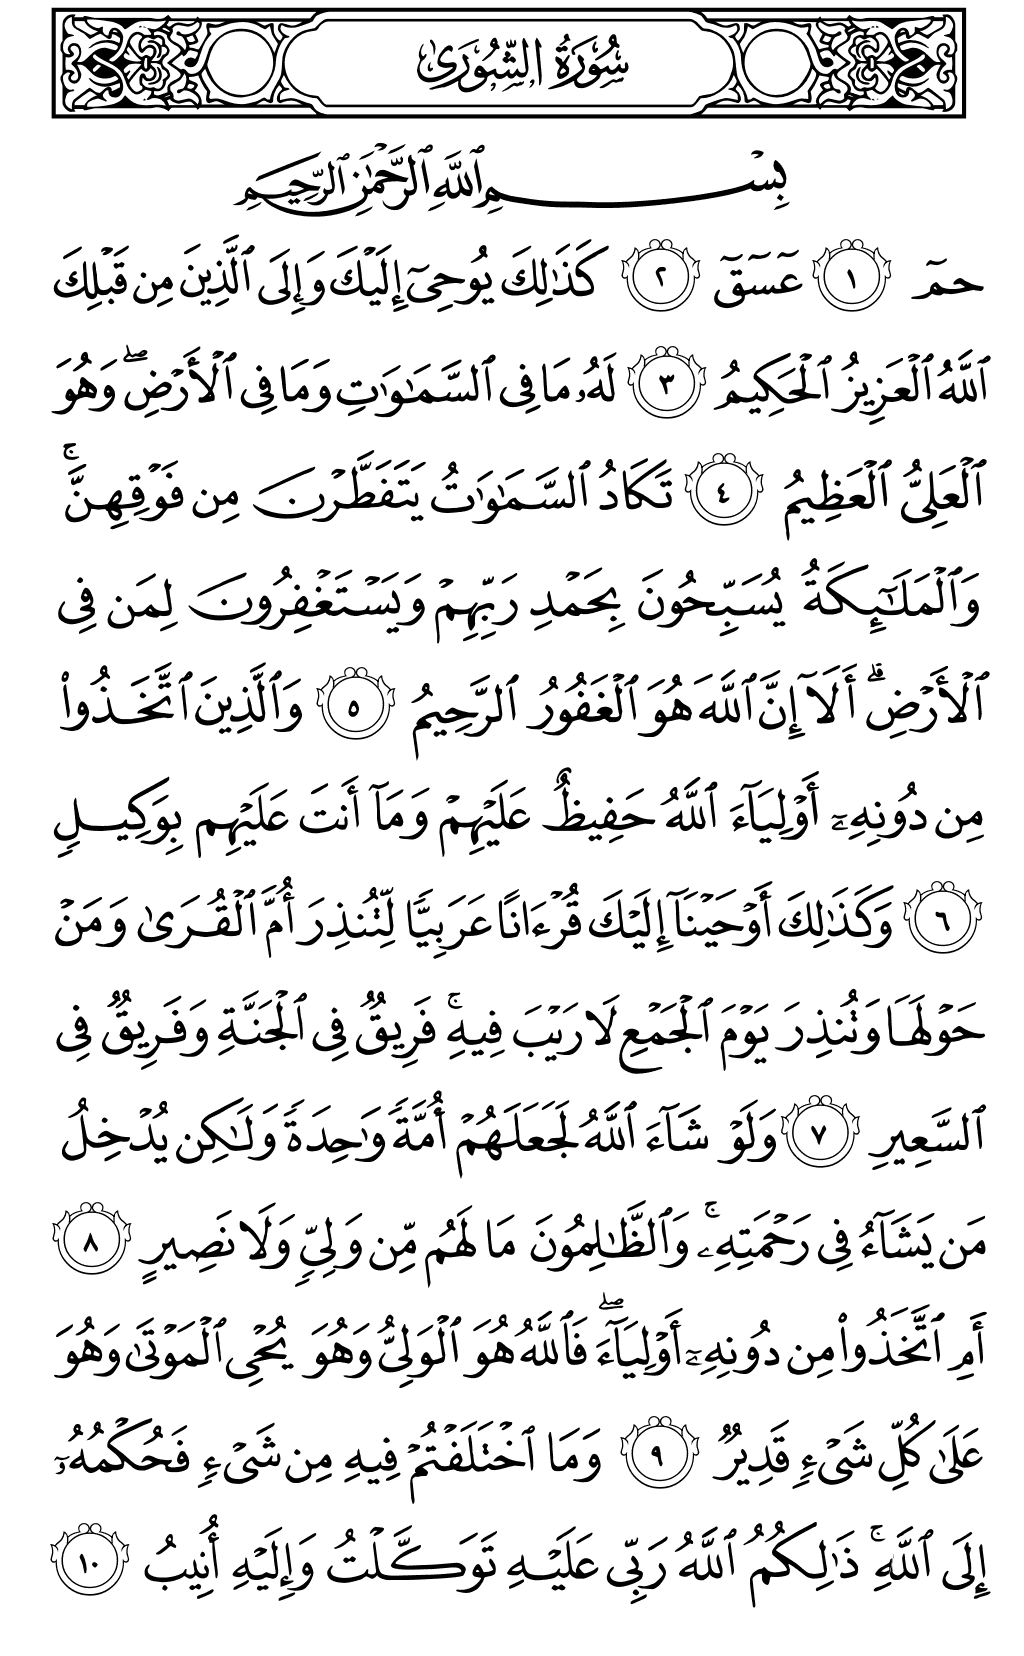 سُورَةُ الشُّورَىٰ
بِسْمِ ٱللَّهِ ٱلرَّحْمَٰنِ ٱلرَّحِيمِ
حمٓ ١ عٓسٓقٓ ٢ كَذَٰلِكَ يُوحِىٓ إِلَيْكَ وَإِلَى ٱلَّذِينَ مِن قَبْلِكَ
ٱللَّهُ ٱلْعَزِيزُ ٱلْحَكِيمُ ٣ لَهُۥ مَا فِى ٱلسَّمَٰوَٰتِ وَمَا فِى ٱلْأَرْضِۖ وَهُوَ
ٱلْعَلِىُّ ٱلْعَظِيمُ ٤ تَكَادُ ٱلسَّمَٰوَٰتُ يَتَفَطَّرْنَ مِن فَوْقِهِنَّۚ
وَٱلْمَلَٰٓئِكَةُ يُسَبِّحُونَ بِحَمْدِ رَبِّهِمْ وَيَسْتَغْفِرُونَ لِمَن فِى
ٱلْأَرْضِۗ أَلَآ إِنَّ ٱللَّهَ هُوَ ٱلْغَفُورُ ٱلرَّحِيمُ ٥ وَٱلَّذِينَ ٱتَّخَذُوا۟
مِن دُونِهِۦٓ أَوْلِيَآءَ ٱللَّهُ حَفِيظٌ عَلَيْهِمْ وَمَآ أَنتَ عَلَيْهِم بِوَكِيلٍ
٦ وَكَذَٰلِكَ أَوْحَيْنَآ إِلَيْكَ قُرْءَانًا عَرَبِيًّا لِّتُنذِرَ أُمَّ ٱلْقُرَىٰ وَمَنْ
حَوْلَهَا وَتُنذِرَ يَوْمَ ٱلْجَمْعِ لَا رَيْبَ فِيهِۚ فَرِيقٌ فِى ٱلْجَنَّةِ وَفَرِيقٌ فِى
ٱلسَّعِيرِ ٧ وَلَوْ شَآءَ ٱللَّهُ لَجَعَلَهُمْ أُمَّةً وَٰحِدَةً وَلَٰكِن يُدْخِلُ
مَن يَشَآءُ فِى رَحْمَتِهِۦۚ وَٱلظَّٰلِمُونَ مَا لَهُم مِّن وَلِىٍّ وَلَا نَصِيرٍ ٨
أَمِ ٱتَّخَذُوا۟ مِن دُونِهِۦٓ أَوْلِيَآءَۖ فَٱللَّهُ هُوَ ٱلْوَلِىُّ وَهُوَ يُحْىِ ٱلْمَوْتَىٰ وَهُوَ
عَلَىٰ كُلِّ شَىْءٍ قَدِيرٌ ٩ وَمَا ٱخْتَلَفْتُمْ فِيهِ مِن شَىْءٍ فَحُكْمُهُۥٓ
إِلَى ٱللَّهِۚ ذَٰلِكُمُ ٱللَّهُ رَبِّى عَلَيْهِ تَوَكَّلْتُ وَإِلَيْهِ أُنِيبُ ١٠